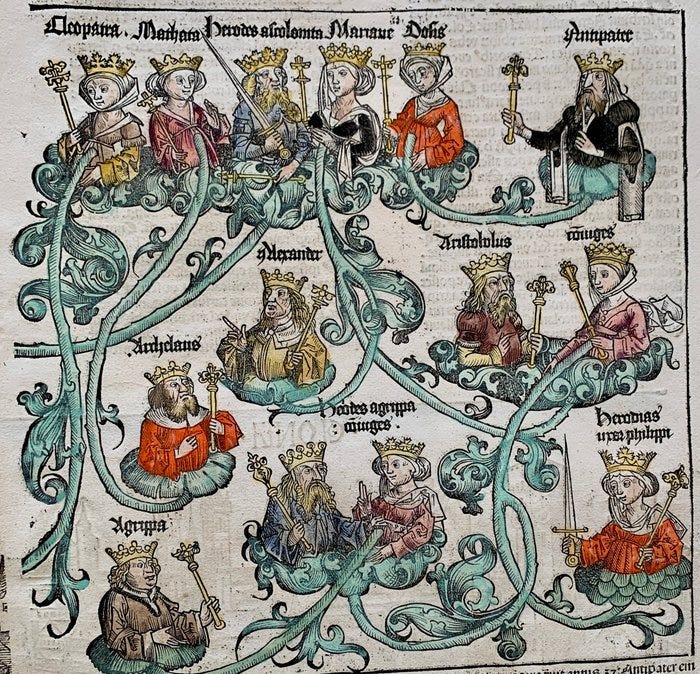 Cleopatra. Mathata Herodes ascolonita Mariane Dosis Antipater
Alexander
Aristobolus coniuges
Archelaus
Herodes agrippa
coniuges.
Herodias
uxor philippi
Agrippa
annis 37. Antipater ein